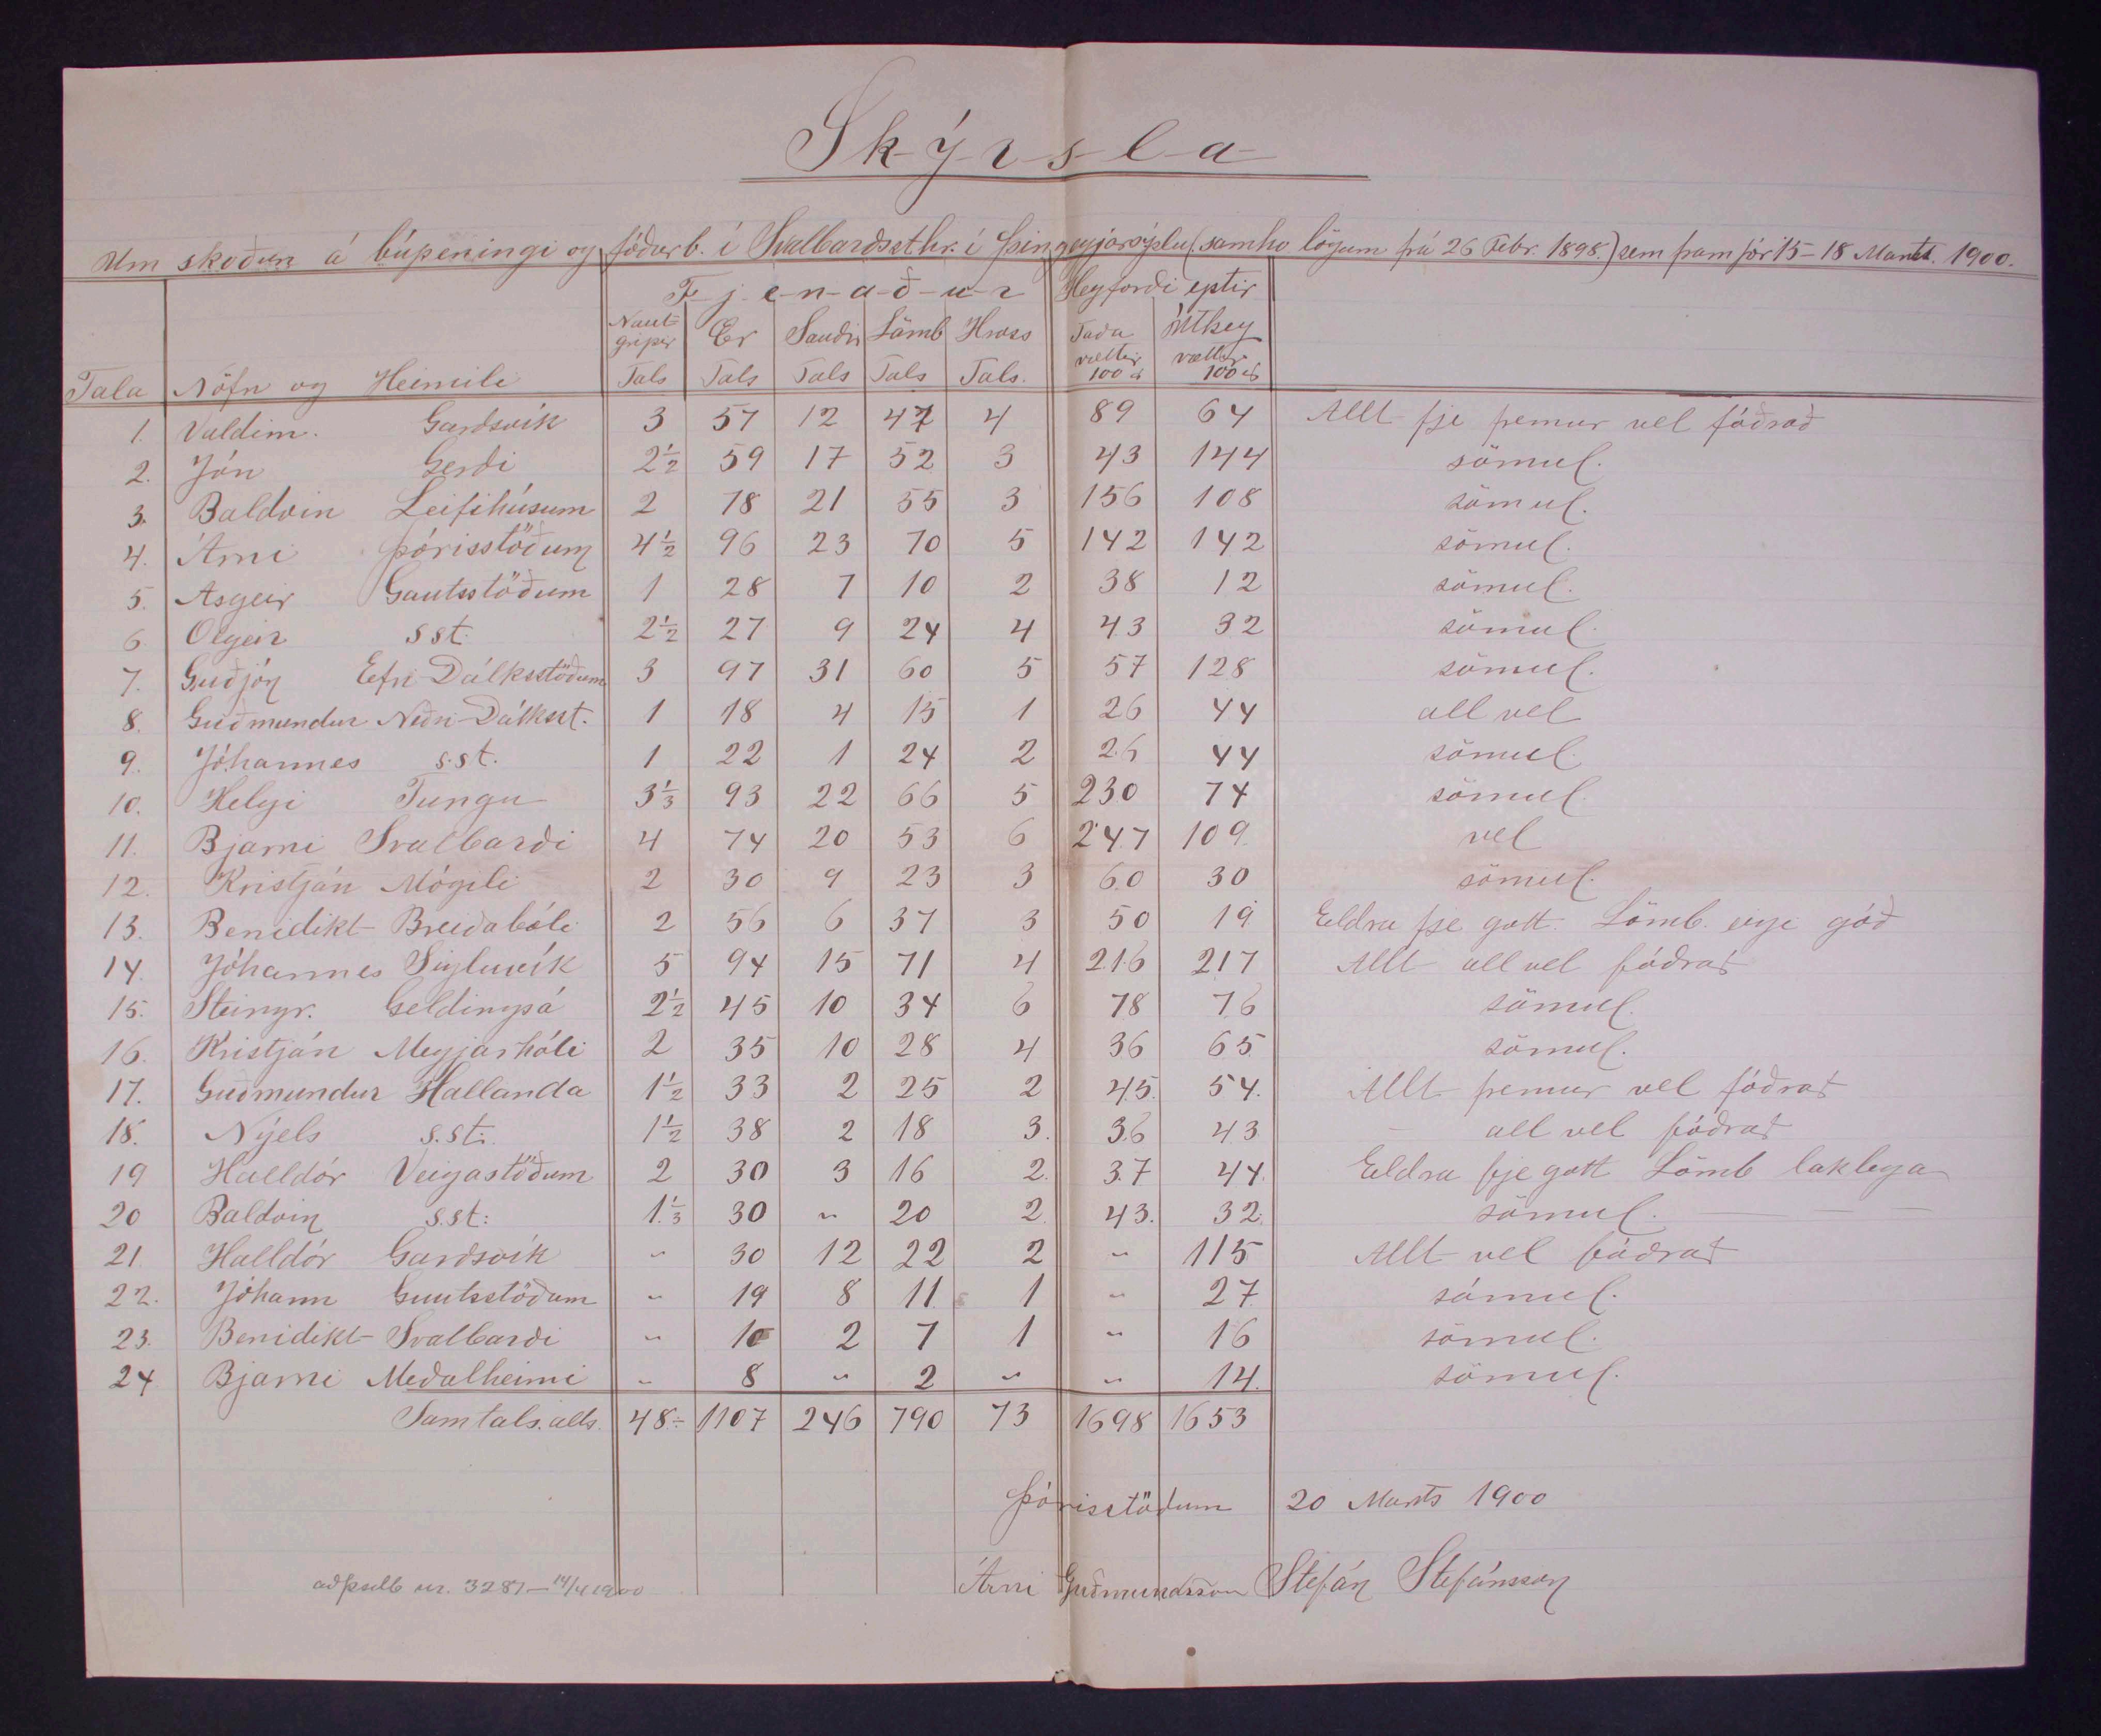 Skýrsla
Um skoðun á búpeningi og fóðurb. í Svalbarðssthr. í Þingeyjarsýslu (samhv. lögum frá 26 Febr. 1898.) sem fram fór 15-18 Marts. 1900.
Fjenaður Heyforði eptir
Naut-gripir Ær Sauðir Lömb Hross Taða vættir 100 ℔ Úthey vættir 100 ℔
Tala Nöfn og Heimili Tals Tals Tals Tals Tals.
1. Valdim. Garðsvík 3 57 12 47 4 89 64 Allt fje fremur vel fóðrað
2. Jón Gerði 2½ 59 17 52 3 43 144 sömul.
3. Baldvin Leifshúsum 2 78 21 55 3 156 108 sömul.
4. Árni Þórisstöðum 4½ 96 23 70 5 142 142 sömul.
5. Asgeir Gautsstöðum 1 28 7 10 2 38 12 sömul.
6 Olgeir s st. 2½ 27 9 24 4 43 32 sömul.
7. Guðjón Efri-Dálksstöðum 3 97 31 60 5 57 128 sömul.
8. Guðmundur Neðri-Dálksst. 1 18 4 15 1 26 44 all vel
9. Jóhannes s.st. 1 22 1 24 2 26 44 sömul.
10. Helgi Tungu 3⅓ 93 22 66 5 230 74 sömul.
11. Bjarni Svalbarði 4 74 20 53 6 247 109. vel
12. Kristján Mógili 2 30 9 23 3 60 30 sömul.
13. Benidikt Breiðabóli 2 56 6 37 3 50 19 Eldra fje gott. Lömb eigi góð
14. Jóhannes Sigluvík 5 94 15 71 4 216 217 Allt all vel fóðrað
15. Steingr. Geldingsá 2½ 45 10 34 6 78 76 sömul.
16. Kristján Meyjarhóli 2 35 10 28 4 36 65 sömul.
17. Guðmundur Hallanda 1½ 33 2 25 2 45. 54. Allt fremur vel fóðrað
18. Níjels s.st. 1½ 38 2 18 3. 36 43 – all vel fóðrað
19 Halldór Veigastöðum 2 30 3 16 2. 37 44. Eldra fje gott Lömb laklega
20 Baldvin s.st: 1⅓ 30 " 20 2. 43. 32. sömul. — —
21. Halldór Garðsvík " 30 12 22 2 " 115 Allt vel fóðrað
22. Jóhann Gautsstöðum " 19 8 11 1 " 27. sömul.
23. Benidikt Svalbarði " 10 2 7 1 " 16 sömul.
24 Bjarni Meðalheimi " 8 " 2 " " 14. sömul.
Samtals. alls. 48 ÷ 1107 246 790 73 1698 1653
Þórisstöðum 20 Marts 1900
Árni Guðmundsson Stefán Stefánsson
nr. 3281 – 14/4 1900